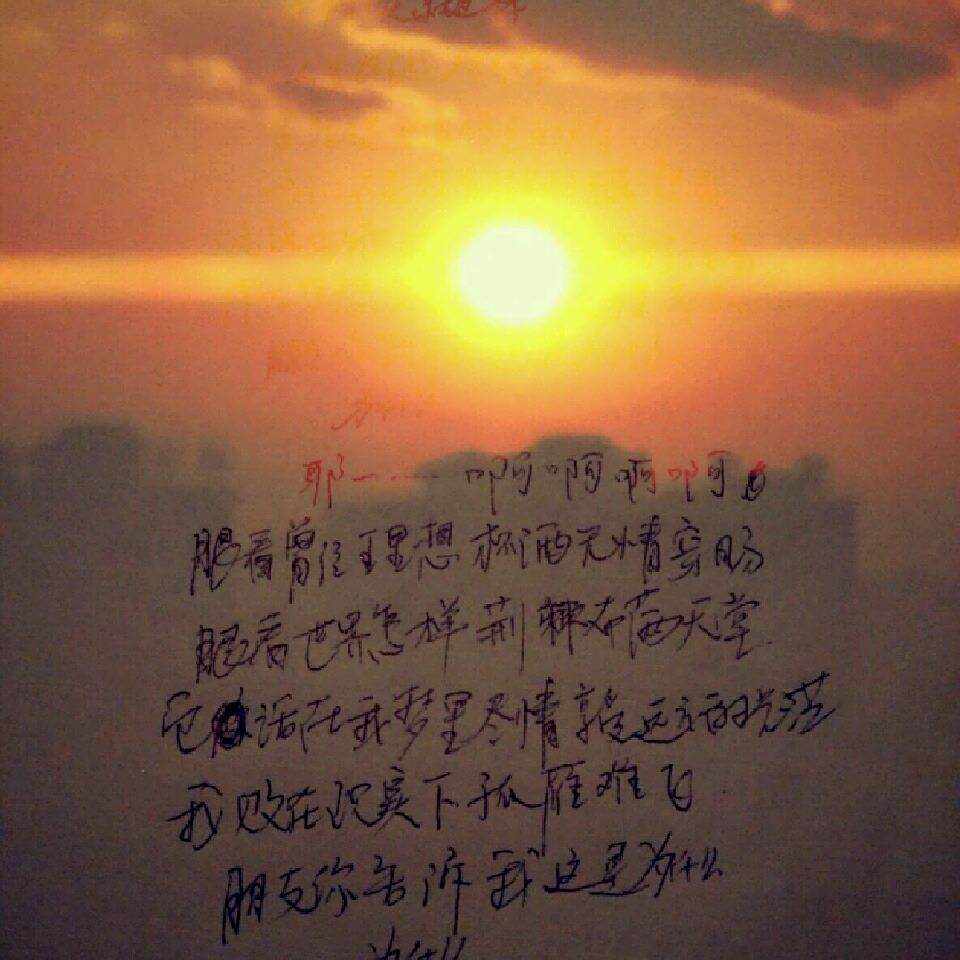 耶一……啊啊啊啊
眼看曾经理想 杯酒无情穿肠
眼看世界怎样 荆棘布满天堂
它活在我梦里尽情享受远方的光茫
我败在现实下孤雁难飞
朋友你告诉我这是为什么
为什么